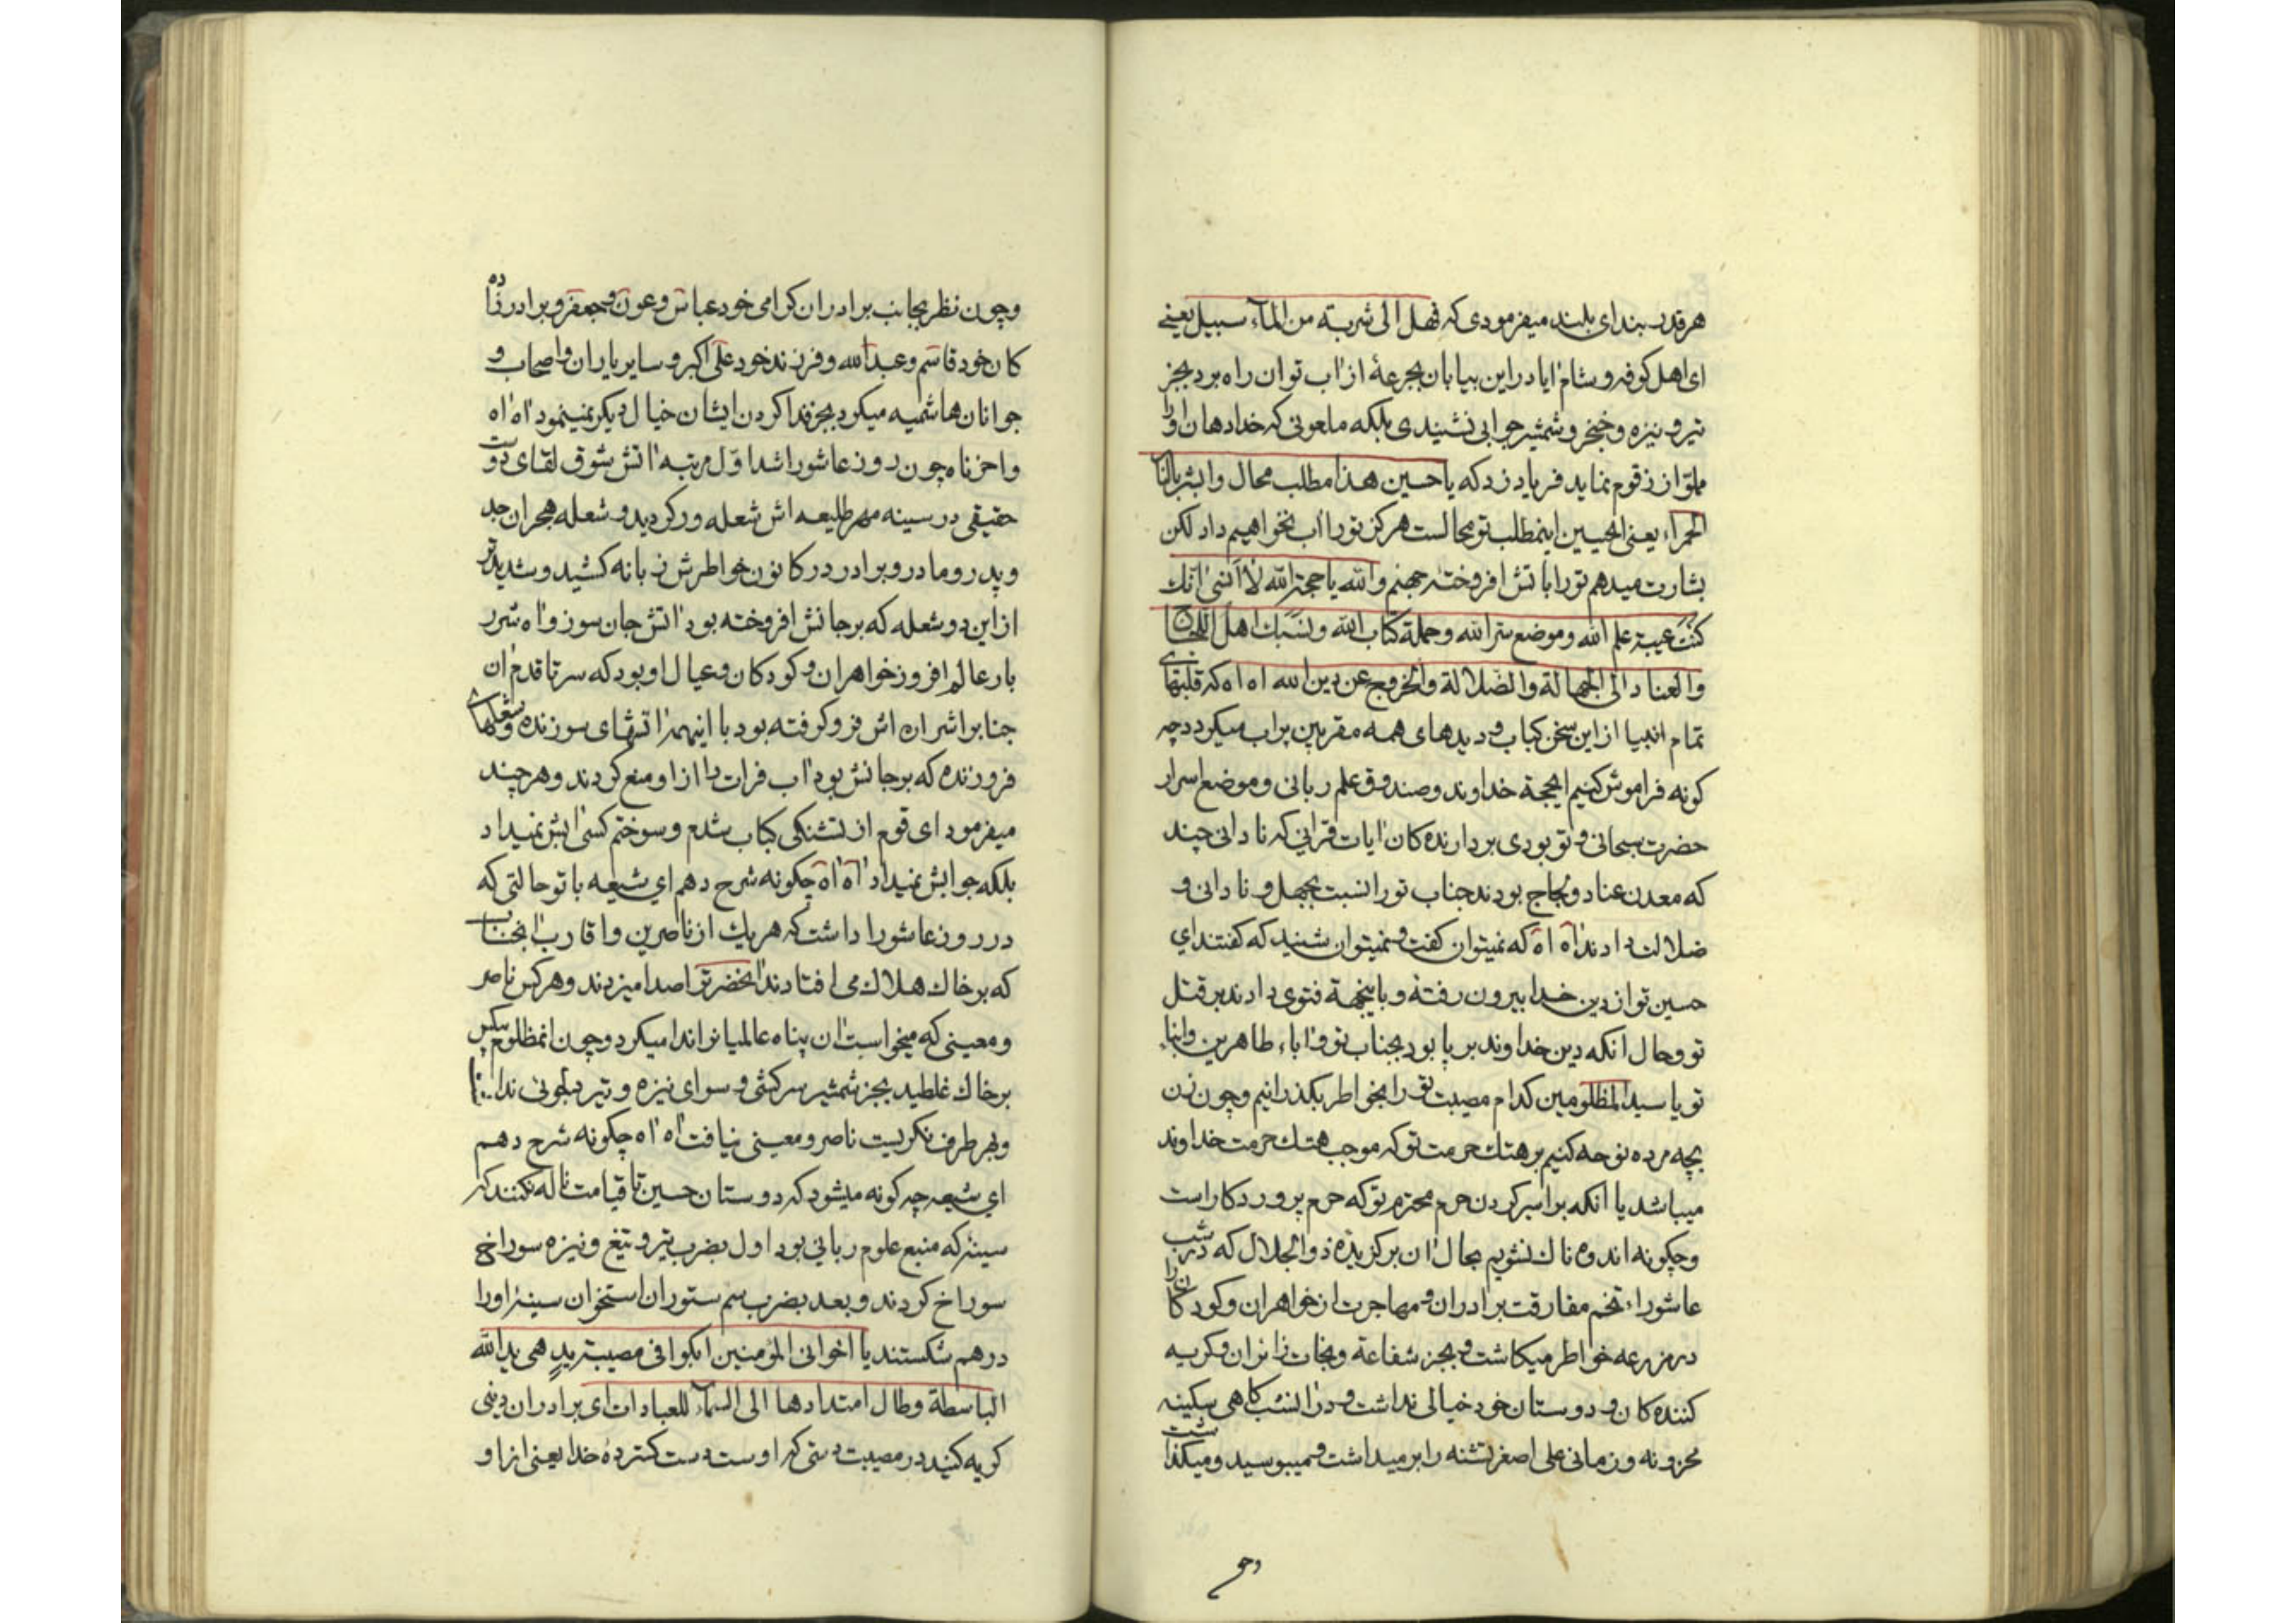 هرقدر بندای بلند میفرمودی که فهل الی شربته من المآء سبیل یعنے
ای اهل کوفه و شام ایا دراین بیابان بجرعهٔ از اب توان راه برد بجز
تیر و نیزه و خنجر و شمشیر جوابی نشیندی بلکه ملعونی که خدا دهان او را
مملو از زقوم نماید فریاد زد که یا حسین هذا مطلب محال وابشر بالنار
الحمراء یعنی ایحسین اینمطلب تو محالست هرکز تو را اب نخواهیم داد لکن
بشارت میدهم تو را باتش افروختهٔ جهنم والله یا حجة الله لا انسی انك
کنت عیبة علم الله وموضع سرالله وحملة کتاب الله ونسبك اهل اللجاج
والعناد الی الجهالة والضلالة والخروج عن دین الله اه اه که قلبهای
تمام انبیا از این سخن کباب و دیدهای همه مقربین پراب میکردد چه
کونه فراموش کنیم ایحجة خداوند و صندوق علم ربانی و موضع اسرار
حضرت سبحانی و تو بودی بردارنده کان ایات قرانی که نادانی چند
که معدن عناد و لجاج بودند جناب تو را نسبت بجهل و نادانی و
ضلالت دادند اه اه که نمیتوان کفت و نمیتوان شنید که کفتند ای
حسین تو از دین خدا بیرون رفتهٔ و باینجهة فتوی دادند بر قتل
تو و حال انکه دین خداوند بر پا بود بجناب تو و اباء طاهرین و ابناء
تو یا سید المظلومین کدام مصیبت تو را بخواطر بکذرانیم و چون زن
بچه مرده نوحه کنیم بر هتك حرمت تو که موجب هتك حرمت خداوند
میباشد یا انکه بر اسیر کردن حرم محترم تو که حرم پروردکار است
و چکونه اندوه ناك نشویم بحال ان برکزیدهٔ ذوالجلال که در شب
عاشوراء تخم مفارقت برادران و مهاجرت از خواهران و کودکان را
در مزرعه خواطر میکاشت و بجز شفاعة و نجات زائران و کریه
کننده کان و دوستان خود خیالی نداشت و در انشب کاهی سکینه
محزونه و زمانی علی اصغر تشنه را برمیداشت و میبوسید و میکذاشت
وحو
و چون نظر بجانب برادران کرامی خود عباس و عون و جعفر و برادر زاده
کان خود قاسم و عبدالله و فرزند خود علی اکبر و سایر یاران و اصحاب و
جوانان هاشمیه میکرد بجز فدا کردن ایشان خیال دیکر نمینمود اه اه
واحزناه چون روز عاشورا شد اول مرتبه اتش شوق لقای دوست
حقیقی در سینه مهر طلیعه اش شعله ور کردید و شعله هجران جد
و پدر و مادر و برادر در کانون خواطرش زبانه کشید و شدیدتر
از این دو شعله که بر جانش افروخته بود اتش جان سوز و اه شرر
بار عالم افروز خواهران و کودکان و عیال او بود که سر تا قدم ان
جنابرا شراره اش فرو کرفته بود با اینهمه اتشهای سوزنده و شعلهای
فروزنده که بر جانش بود اب فرات را از او منع کردند و هر چند
میفرمود ای قوم از تشنکی کباب شدم و سوختم کسی ابش نمیداد
بلکه جوابش نمیداد اه اه چکونه شرح دهم ای شیعه با تو حالتی که
در روز عاشورا داشت که هر یك از ناصرین و اقارب انجناب
که بر خاك هلاك می افتادند انحضرترا صدا میزدند و هر کس ناصر
و معینی که میخواست ان پناه عالمیانرا ندا میکرد و چون انمظلوم بیکس
بر خاك غلطید بجز شمشیر سرکشی و سوای نیزه و تیر دلجوئی نداشت
و بهر طرف نکریست ناصر و معینی نیافت اه اه چکونه شرح دهم
ای شیعه چه کونه میشود که دوستان حسین تا قیامت ناله نکنند که
سینهٔ که منبع علوم ربانی بود اول بضرب تیر و تیغ و نیزه سوراخ
سوراخ کردند و بعد بضرب سم ستوران استخوان سینهٔ او را
درهم شکستند یا اخوانی المؤمنین ابکوا فی مصیبة یدٍ هی یدالله
الباسطة وطال امتدادها الی السمآء للعبادات ای برادران دینی
کریه کنید در مصیبت دستی که او ست دست کسترده خدا یعنی از او